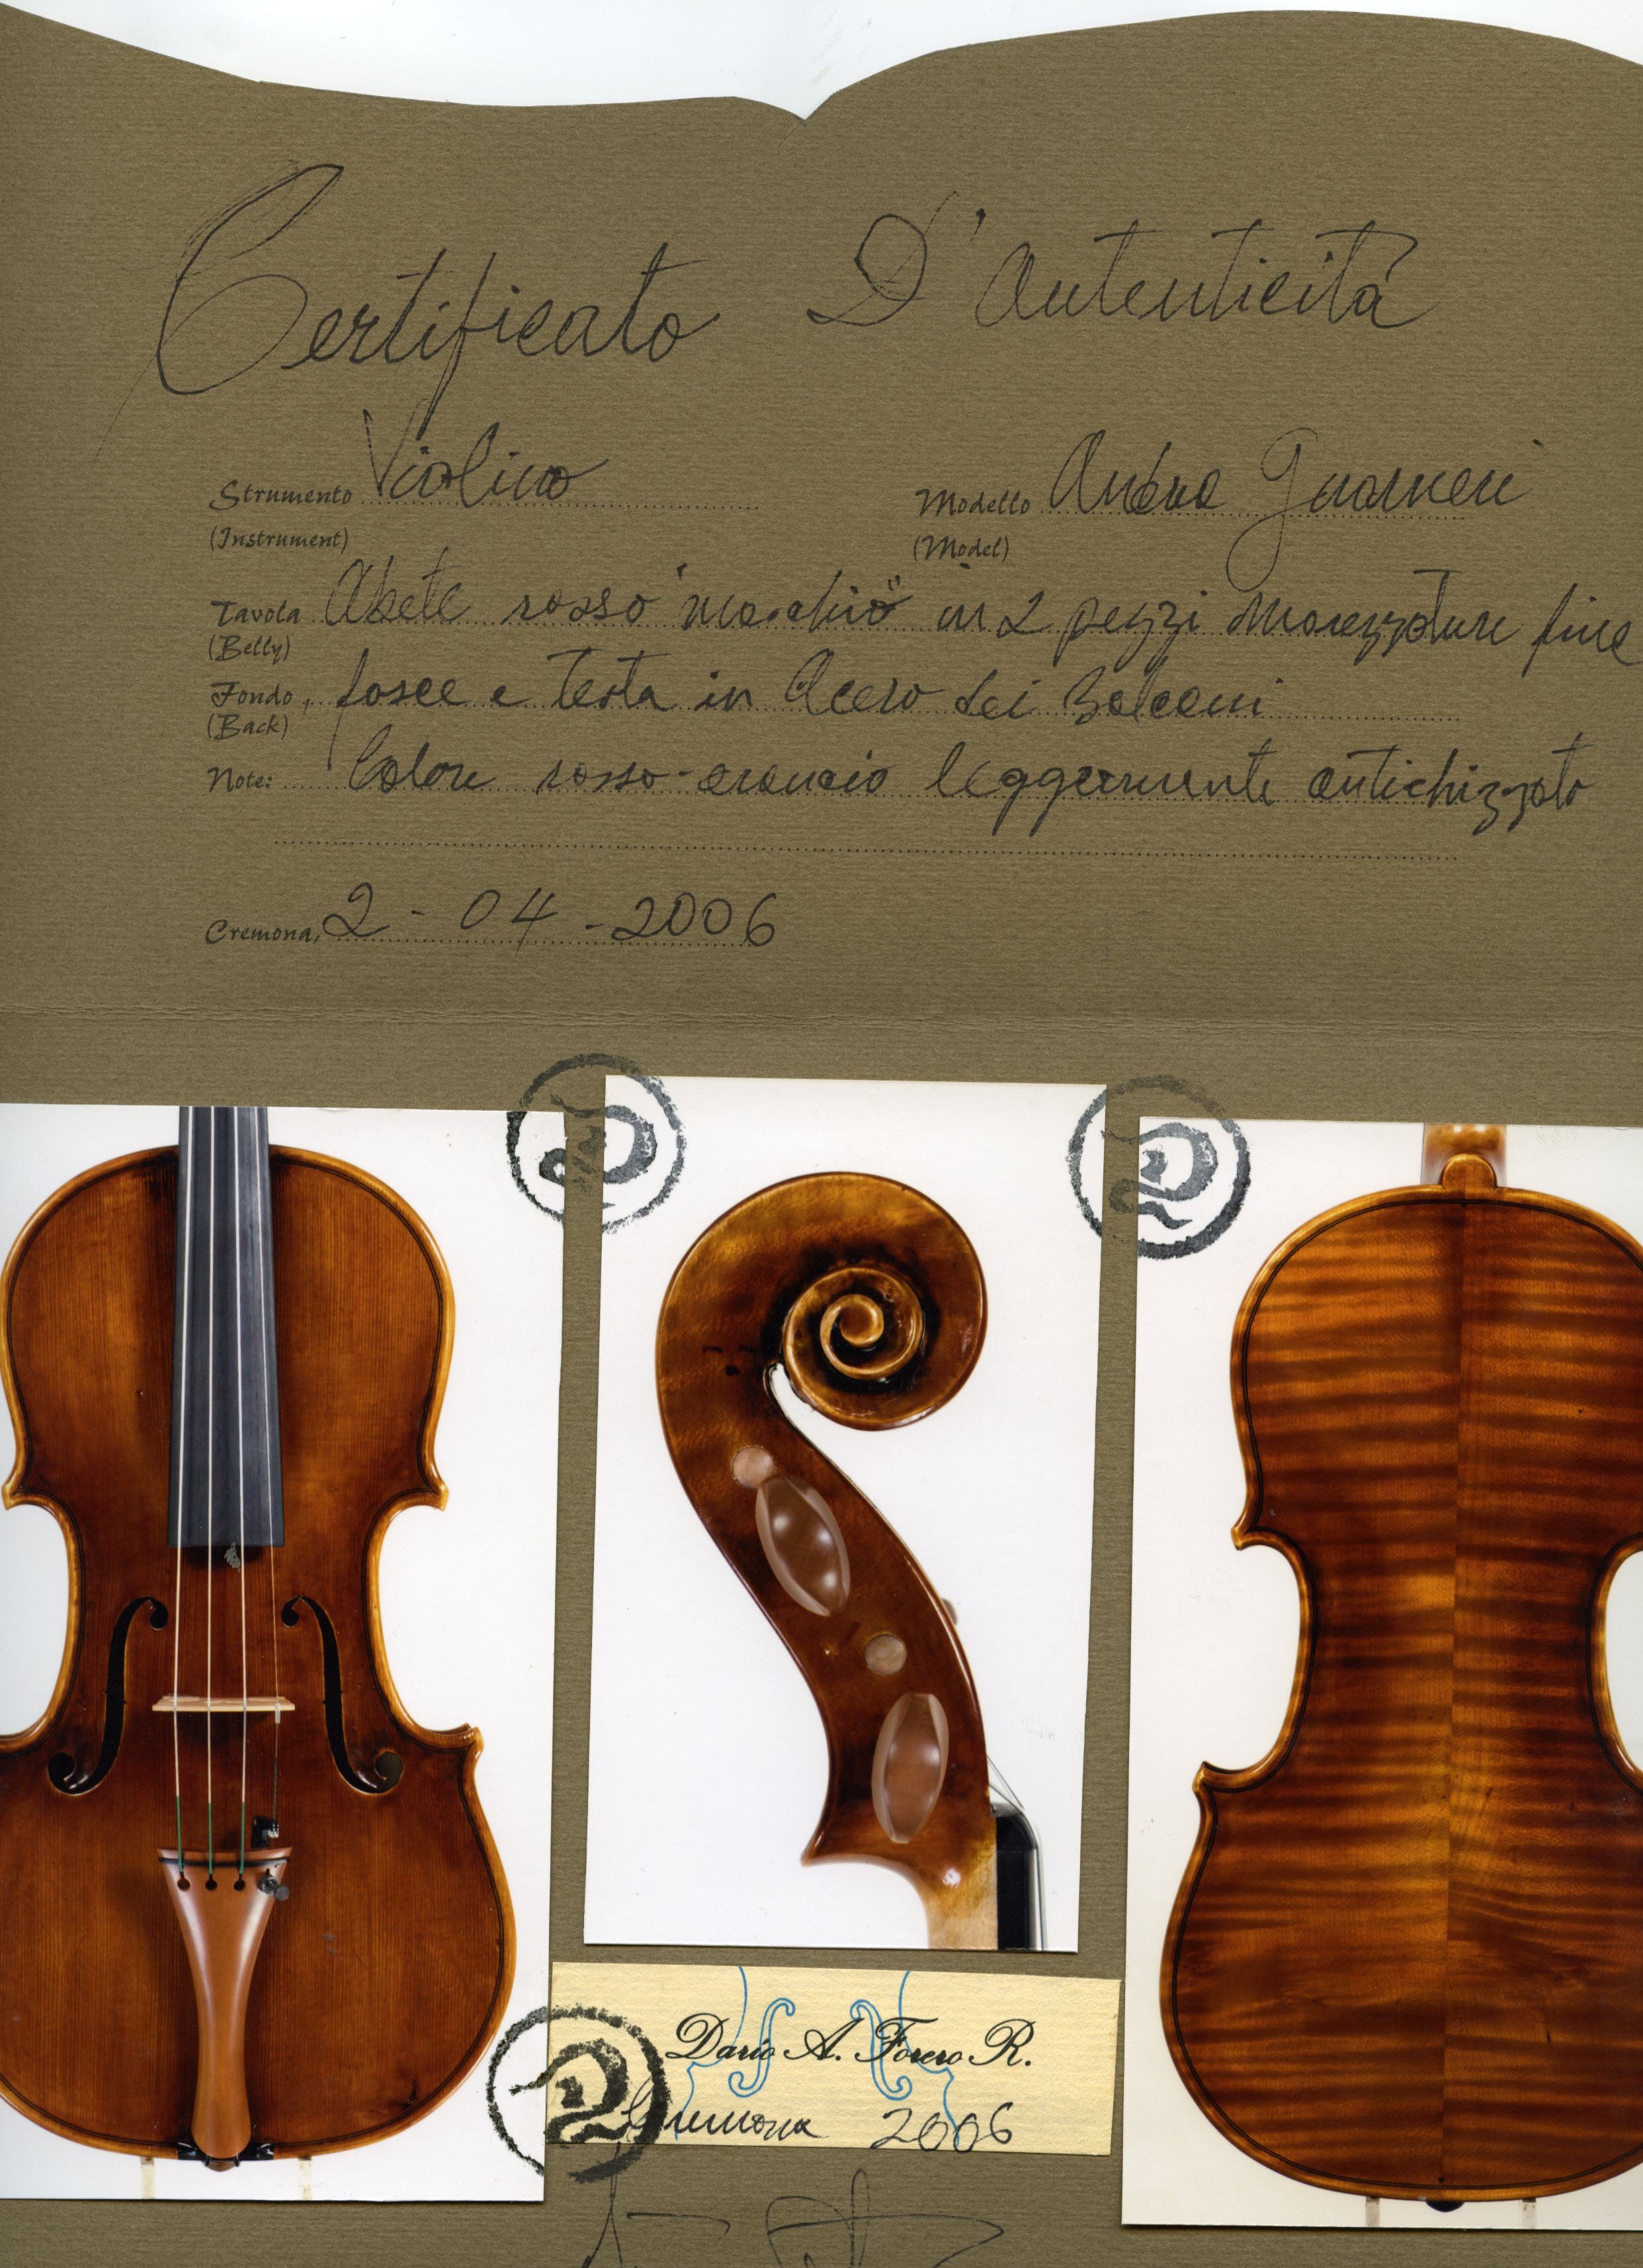 Certificato D'Autenticità
Strumento Violino
(Instrument)
Modello Andrea Guarneri
(Model)
Tavola Abete rosso "maschio" in 2 pezzi Marezzature fine
(Belly)
Fondo, fasce e testa in Acero dei Balcani
(Back)
Note: Colore rosso-arancio leggermente antichizzato
Cremona, 2-04-2006
Dario A. Forero R.
Cremona 2006